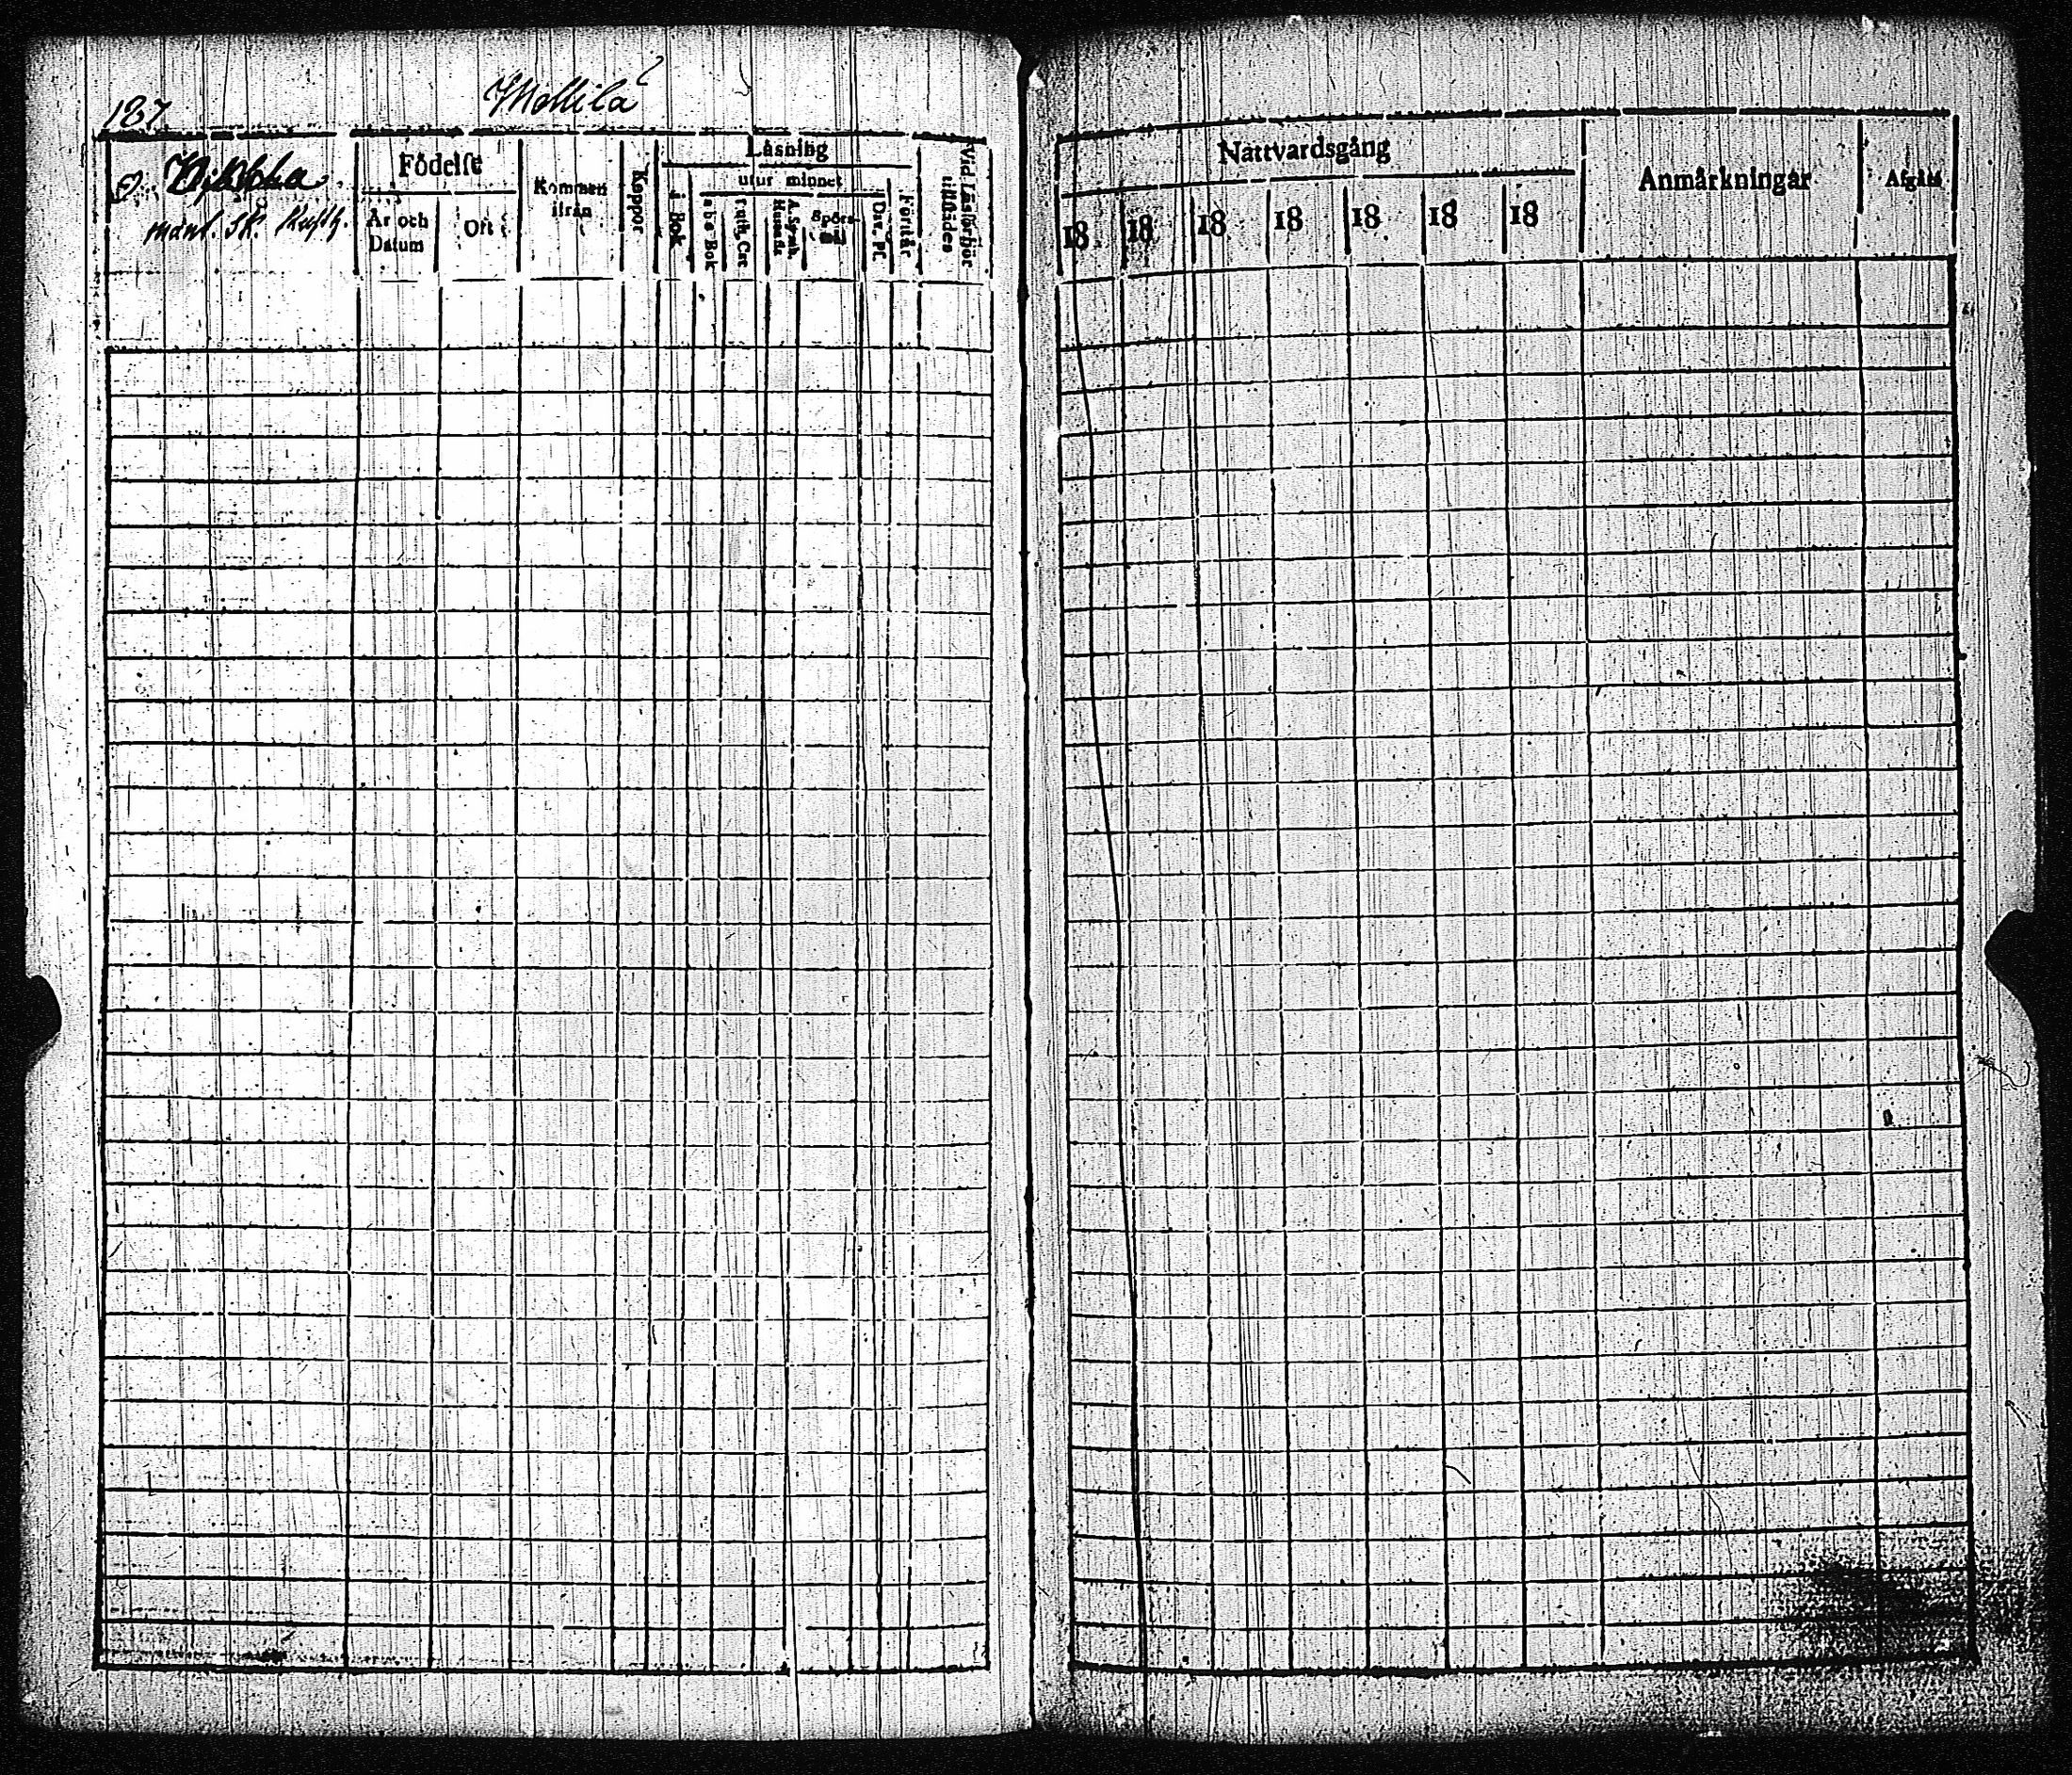 187
Mellilä
Födelse
År och Datum
Ort
Kommen ifrån
Koppor
Läsning
utur minnet
i Bok
a b c Bok
Luth. Cat.
A. Symb. Hustafla
Spörsmål
Dav. Ps.
Förstår
Vid Läsförhör tillstädes
Nattvardsgång
18 18 18 18 18 18 18
Anmärkningar
Afgått